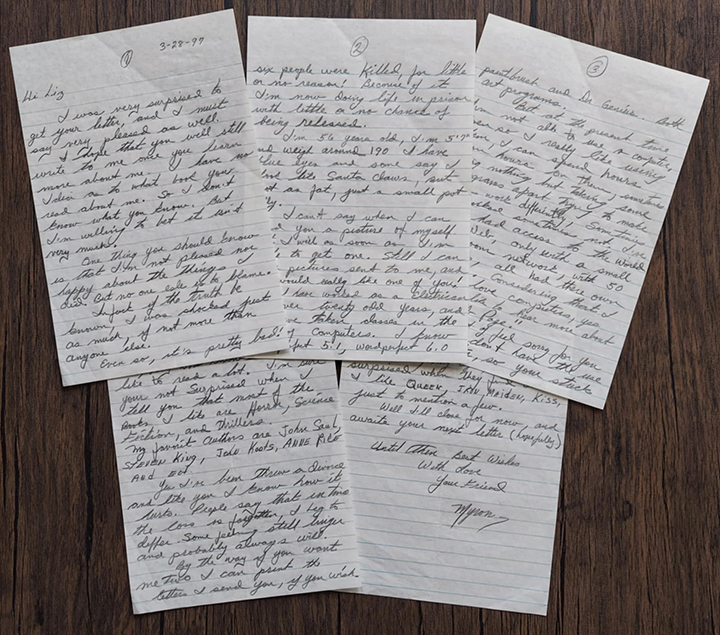 ①
3-28-97
Hi Liz
I was very surprised to
get your letter, and I must
say very pleased as well.
I hope that you well still
write to me once you learn
more about me. I have no
Idea as to what book you
read about me. So I don't
know what you know. But
I'm willing to bet it isn't
very much.
One thing you should know
is that I'm not pleased nor
happy about the things I
did. But no one else is to blame.
If the truth be
known, I was shocked just
as much, if not more than
anyone else.
Even so, it's pretty bad!
②
six people were Killed, for little
or no reason! Because of it
I'm now doing life in prison
with little or no chance of
being released.
I'm 56 years old, I'm 5'7"
and weigh around 190 I have
blue eyes and some say I
look like Santa Claws, but
not as fat, just a small pot
I can't say when I can
you a picture of myself
I will as soon as I'm
to get one. Still I can
pictures sent to me, and
would really like one of you
I have worked as a Electrican
over twenty odd years, and
taken classes in the
of Computers. I know
5.1, wordperfect 6.0
③
paintbrush and Dr Genius. Both
art programs.
But at the present time
I'm not able to use a computer
even so I really like using
I can spend hours
upon hours on them, sometimes
doing nothing but taking some
programs apart trying to make
work differently. Sometimes
sometimes not. I'm
had access to the World
Web, only with a small
room network, with 50
all had there own
Considering that I
love computers, yes
hear more about
Page!
I feel sorry for you
don't have the use
so your stuck
like to read a lot. I'm sure
your not Surprised when I
tell you that most of the
Books I like are Horror, Science
Fiction, and Thrillers.
My favorit Authors are John Saul,
Steven King, John Koots, ANNE Rice
And
Yes I've been threw a Divorce
and like you I know how it
hurts. People say that in time
the loss is forgotten, I beg to
differ. Some feeling still linger
and probably always will.
By the way if you want
me two I can print the
letters I send you, if you wish.
surprised when they
I like Queen, IRN Maiden, Kiss,
just to mention a few.
Well I'll close for now, and
await your next letter (hopefully)
Until Then Best Wishes
With Love
Your Friend
Myron